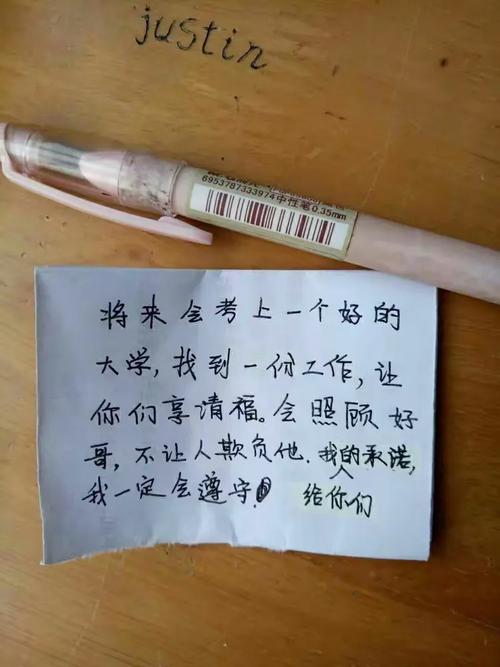 justin
6953787333974中性笔0.35mm
将来会考上一个好的
大学，找到一份工作，让
你们享清福。会照顾好
哥，不让人欺负他．我的承诺，
我一定会遵守．
给你们